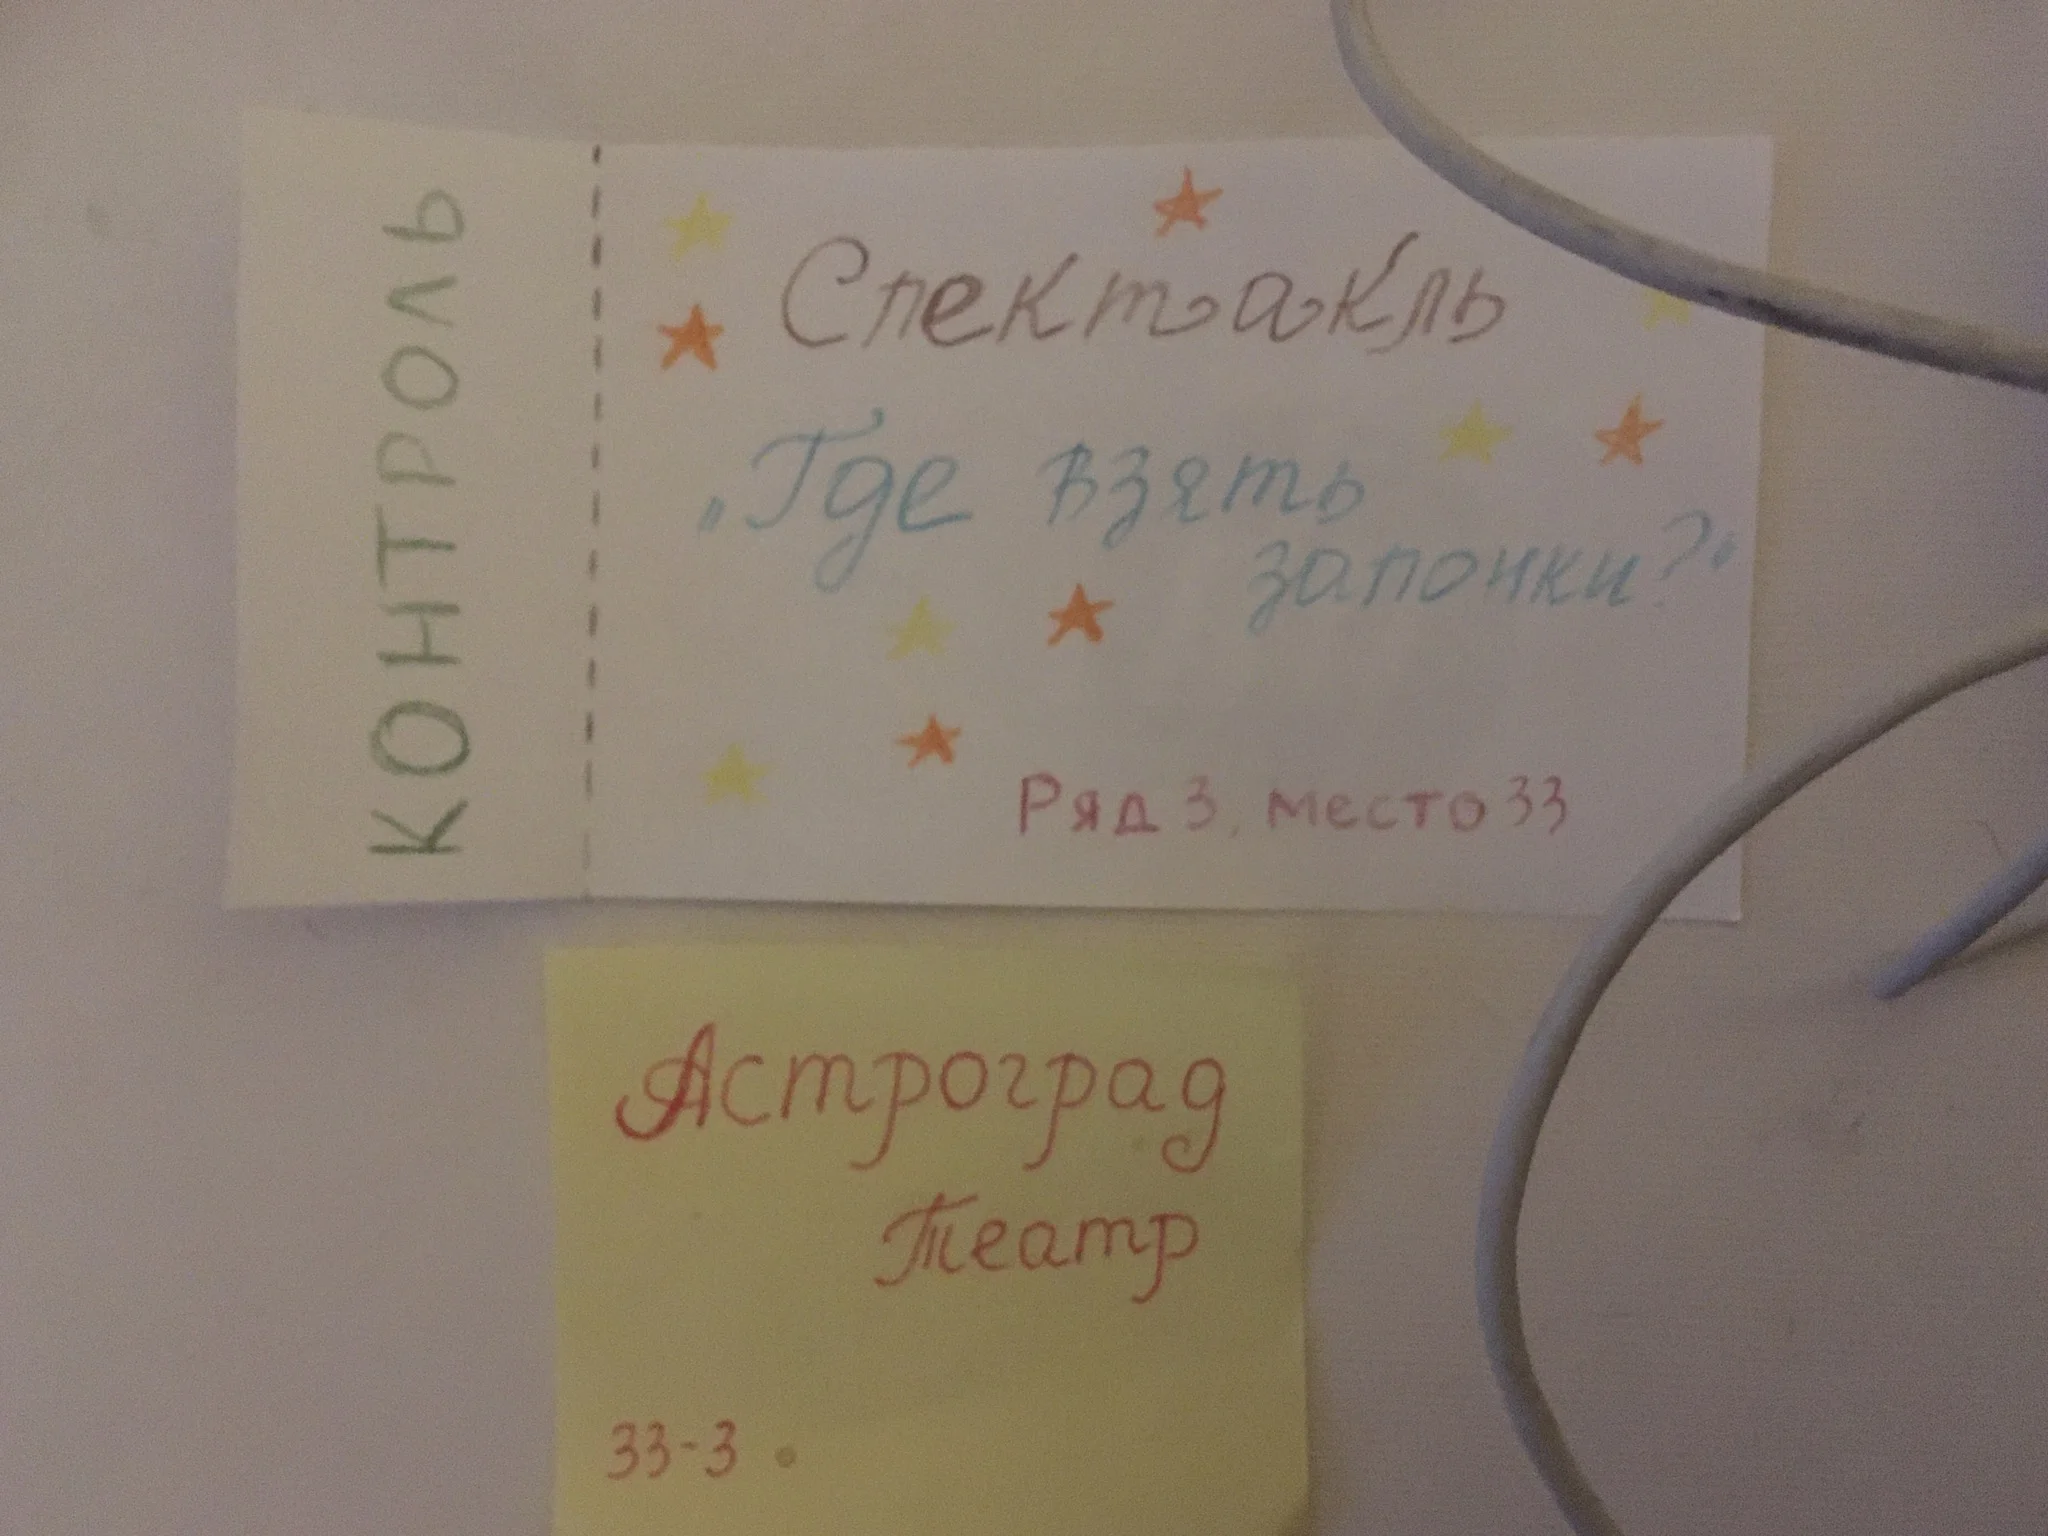 КОНТРОЛЬ
Спектакль
„Где взять
започки?"
Ряд 3, место 33
Астроград
Театр
33-3